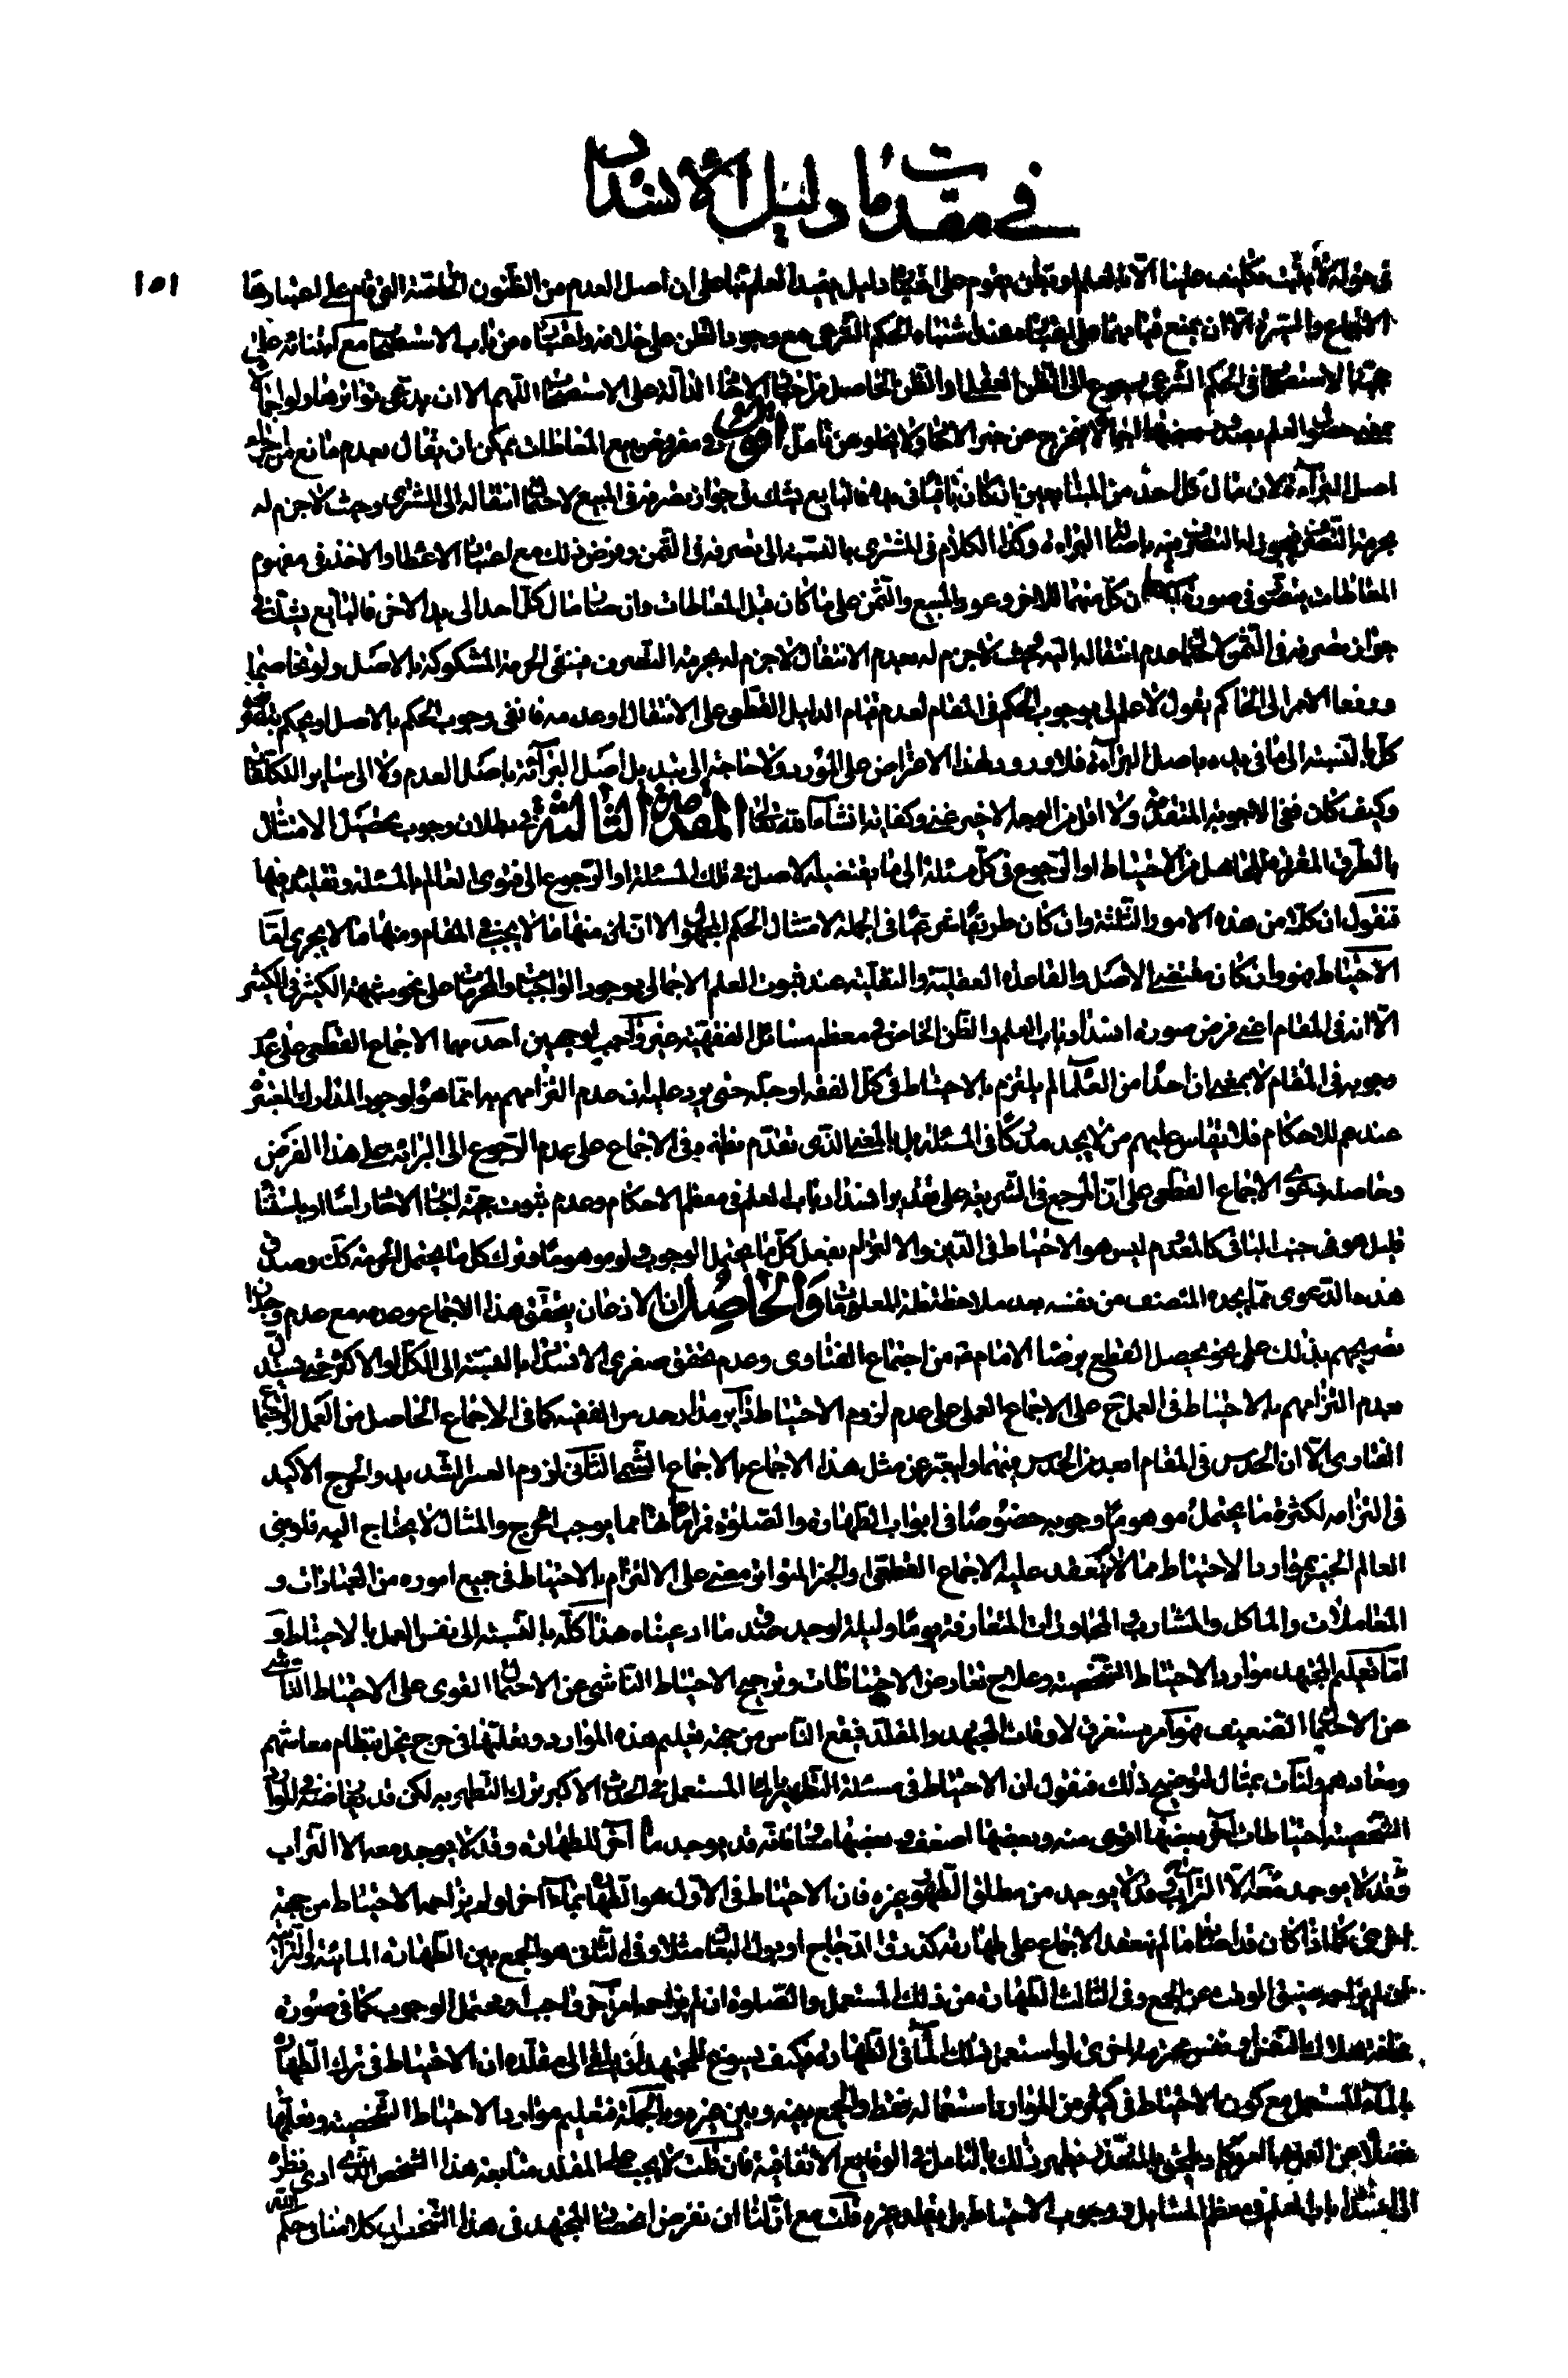 في مقدمات دليل الانسداد
١٥١
في قوله لا يثبت تكليف علينا الا بالعلم او بظن يقوم على اعتباره دليل يفيد العلم بناء على ان اصل العدم من الظنون الخاصة التي قام على اعتبارها
الاجماع والسيرة الا ان يمنع قيامهما على اعتباره عند اشتباه الحكم الشرعي مع وجود الظن على خلافه واعتباره من باب الاستصحاب مع ابتنائه على
حجية الاستصحاب في الحكم الشرعي رجوع الى الظن العقلي او الظن الحاصل من اخبار الاحاد الدالة على الاستصحاب اللهم الا ان يدعى تواترها ولو اجمالا
بمعنى حصول العلم بصدور بعضها اجمالا فيخرج عن خبر الاحاد ولا يخلو عن تامل في مفروض بيع المعاطات يمكن ان يقال بعدم مانع من اجراء
اصل البراءة لان مال كل احد من المتبايعين ان كان باقيا في يده فالبايع يشك في جواز تصرفه في المبيع لاحتمال انتقاله الى المشتري وحيث لا جزم له
بحرمة التصرف فيجوز له التصرف فيه باصالة البراءة وكذا الكلام في المشتري بالنسبة الى تصرفه في الثمن وفرض ذلك مع اعتبار الاعطاء والاخذ في مفهوم
المعاطات يتصور في صورة كل منهما للاخر وعود المبيع والثمن على ما كان قبل المعاطات وان صار مال كل احد الى يد الاخر فالبايع يشك في
جواز تصرفه في الثمن لاحتمال عدم انتقاله اليه بحيث لا جزم له بعدم الانتقال لا جزم له بحرمة التصرف فينتفي الحرمة المشكوكة بالاصل ولو تخاصما
ورفعا الامر الى الحاكم يقول لا علم لي بوجوب الحكم في المقام لعدم قيام الدليل القطعي على الانتقال او عدمه فانفي وجوب الحكم بالاصل او يحكم بتصرف
كل بالنسبة الى ما في يده باصل البراءة فلا ورود لهذا الاعتراض على المورد ولا حاجة الى تبديل اصل البراءة باصل العدم ولا الى ساير التكلفات
وكيف كان ففي الاجوبة المتقدمة ولا اقل من الوجه الاخير غنى وكفاية انشاء الله تعالى المقدمة الثالثة في بطلان وجوب تحصيل الامتثال
بالطرق المقررة للجاهل من الاحتياط او الرجوع في كل مسئلة الى ما يقتضيه الاصل في تلك المسئلة او الرجوع الى فتوى العالم بالمسئلة وتقليده فيها
فنقول ان كلا من هذه الامور الثلثة وان كان طريقا شرعيا في الجملة لامتثال الحكم المجهول الا ان منها ما لا يجب في المقام ومنها ما لا يجري اما
الاحتياط فهو وان كان مقتضى الاصل والقاعدة العقلية والنقلية عند ثبوت العلم الاجمالي بوجود الواجبات والمحرمات على نحو شبهة الكثير في الكثير
الا انه في المقام اعني فرض صورة انسداد باب العلم والظن الخاص في معظم مسائل الفقهية غير واجب لوجهين احدهما الاجماع القطعي على عدم
وجوبه في المقام لا بمعنى ان احدا من العلماء لم يلتزم بالاحتياط في كل الفقه او جله حتى يرد عليه ان عدم التزامهم به انما هو لوجود المدارك المعتبرة
عندهم للاحكام فلا يقاس عليهم من لا يجد مدركا في المسئلة بل بالمعنى الذي تقدم نظيره في الاجماع على عدم الرجوع الى البراءة على هذا الفرض
وحاصله دعوى الاجماع القطعي على ان المرجع في الشريعة على تقدير انسداد باب العلم في معظم الاحكام وعدم ثبوت حجية اخبار الاحاد راسا او باستثناء
قليل هو في جنب الباقي كالمعدوم ليس هو الاحتياط في الدين والالتزام بفعل كل ما يحتمل الوجوب ولو موهوما وترك كل ما يحتمل الحرمة كك وصدق
هذه الدعوى مما يجده المنصف من نفسه بعد ملاحظة قلة المعلومات والحاصل ان الاذعان بتحقق هذا الاجماع وعدمه مع عدم وجدان
تصريحهم بذلك على نحو يحصل القطع برضا الامام من اجتماع الفتاوى وعدم تحقق صغرى الانسداد بالنسبة الى الكل او الاكثر حتى يستدل
بعدم التزامهم بالاحتياط في العمل ح على الاجماع العملي على عدم لزوم الاحتياط دائر مدار حدس الفقيه كما في الاجماع الحاصل من العمل او اجتماع
الفتاوى الا ان الحدس في المقام ابعد من الحدس فيهما وليعبر عن مثل هذا الاجماع بالاجماع الثاني لزوم العسر الشديد والحرج الاكيد
في التزامه لكثرة ما يحتمل موهوما وجوبه خصوصا في ابواب الطهارة والصلوة فمراعاتها مما يوجب الحرج والمثال لا يحتاج اليه فلو بنى
العالم الخبير بموارد الاحتياط مما لم ينعقد عليه الاجماع القطعي او الخبر المتواتر معنى على الالتزام بالاحتياط في جميع اموره من العبادات و
المعاملات والماكل والمشارب والمحاورات المتعارفة يوما وليلة لوجد صدق ما ادعيناه هذا كله بالنسبة الى نفس العمل بالاحتياط و
اما تعليم المجتهد موارد الاحتياط الشخصية وعلاج تعارض الاحتياطات وترجيح الاحتياط الناشي عن الاحتمال القوي على الاحتياط الناشي
عن الاحتمال الضعيف فهو امر مستغرق لاوقات المجتهد والمقلد فيقع الناس من جهة تعليم هذه الموارد وتعلمها في حرج يخل بنظام معاشهم
ومعادهم ولنات بمثال لتوضيح ذلك فنقول ان الاحتياط في مسئلة التطهير بالماء المستعمل في الحدث الاكبر ترك التطهير به لكن قد يعارضه في الموارد
الشخصية احتياطات اخر بعضها اقوى منه وبعضها اضعف وبعضها مساو فانه قد يوجد ماء اخر للطهارة وقد لا يوجد معه الا التراب
وقد لا يوجد معه الا التراب وقد لا يوجد من مطلق الطهور غيره فان الاحتياط في الاول هو الطهارة بماء اخر لو لم يزاحمه الاحتياط من جهة
اخرى كما اذا كان قد اصابه ما لم ينعقد الاجماع على طهارته كذرق الدجاج او بول البغال مثلا وفي الثاني هو الجمع بين الطهارة المائية والترابية
ان لم يزاحمه ضيق الوقت عن الجمع وفي الثالث الطهارة من ذلك المستعمل والصلوة ان لم يزاحمه امر اخر واجب او محتمل الوجوب كما في صورة
فكيف يسوغ للمجتهد ان يلقي الى مقلده ان الاحتياط في ترك الطهارة
بالماء المستعمل مع كون الاحتياط في كثير من الموارد استعماله فقط والجمع بينه وبين غيره وبالجملة فتعليم موارد الاحتياط الشخصية وتعلمها
فضلا عن العمل بها ويظهر ذلك بالتامل في الوقايع الاتفاقية فان قلت لا يجب على المقلد متابعة هذا الشخص الذي ادى نظره
الى انسداد باب العلم في معظم المسائل ووجوب الاحتياط بل يقلد غيره قلت مع ان لنا ان نفرض انحصار المجتهد في هذا الشخص ان كلامنا في حكم الله